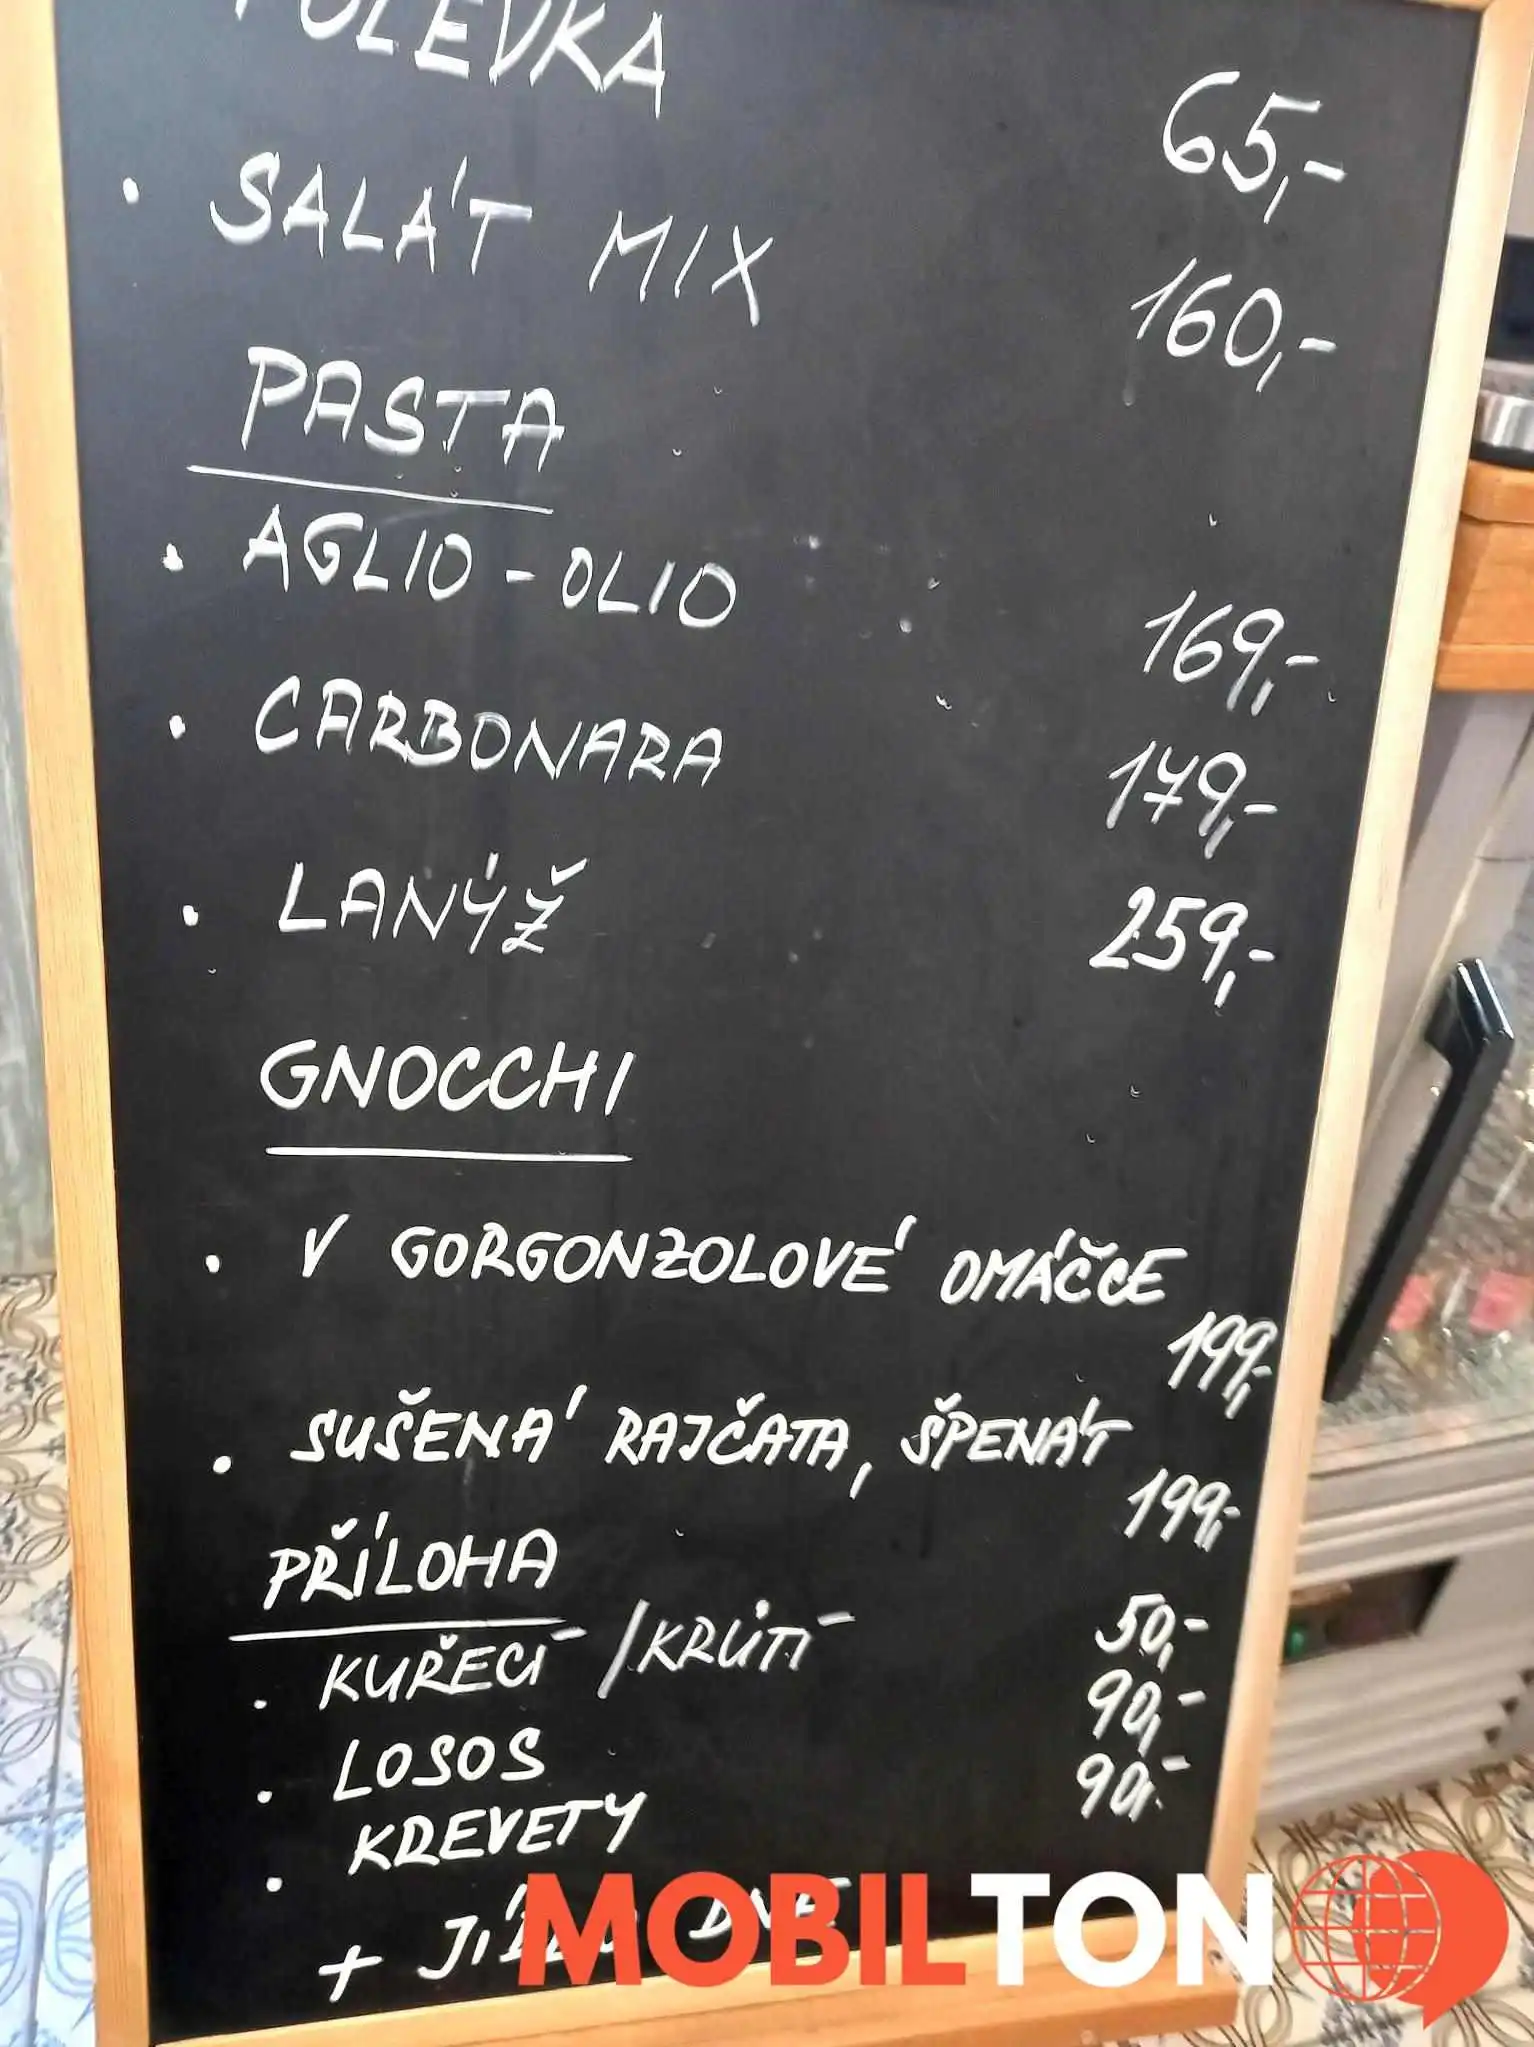 POLEVKA 65,-
• SALÁT MIX 160,-
PASTA
• AGLIO - OLIO 169,-
• CARBONARA 179,-
• LANÝŽ 259,-
GNOCCHI
• V GORGONZOLOVÉ OMÁČCE
199,-
• SUŠENÁ RAJČATA, ŠPENÁT
199,-
PŘÍLOHA
• KUŘECÍ / KRŮTÍ 50,-
• LOSOS 90,-
• KREVETY 90,-
+ DNE
MOBILTON